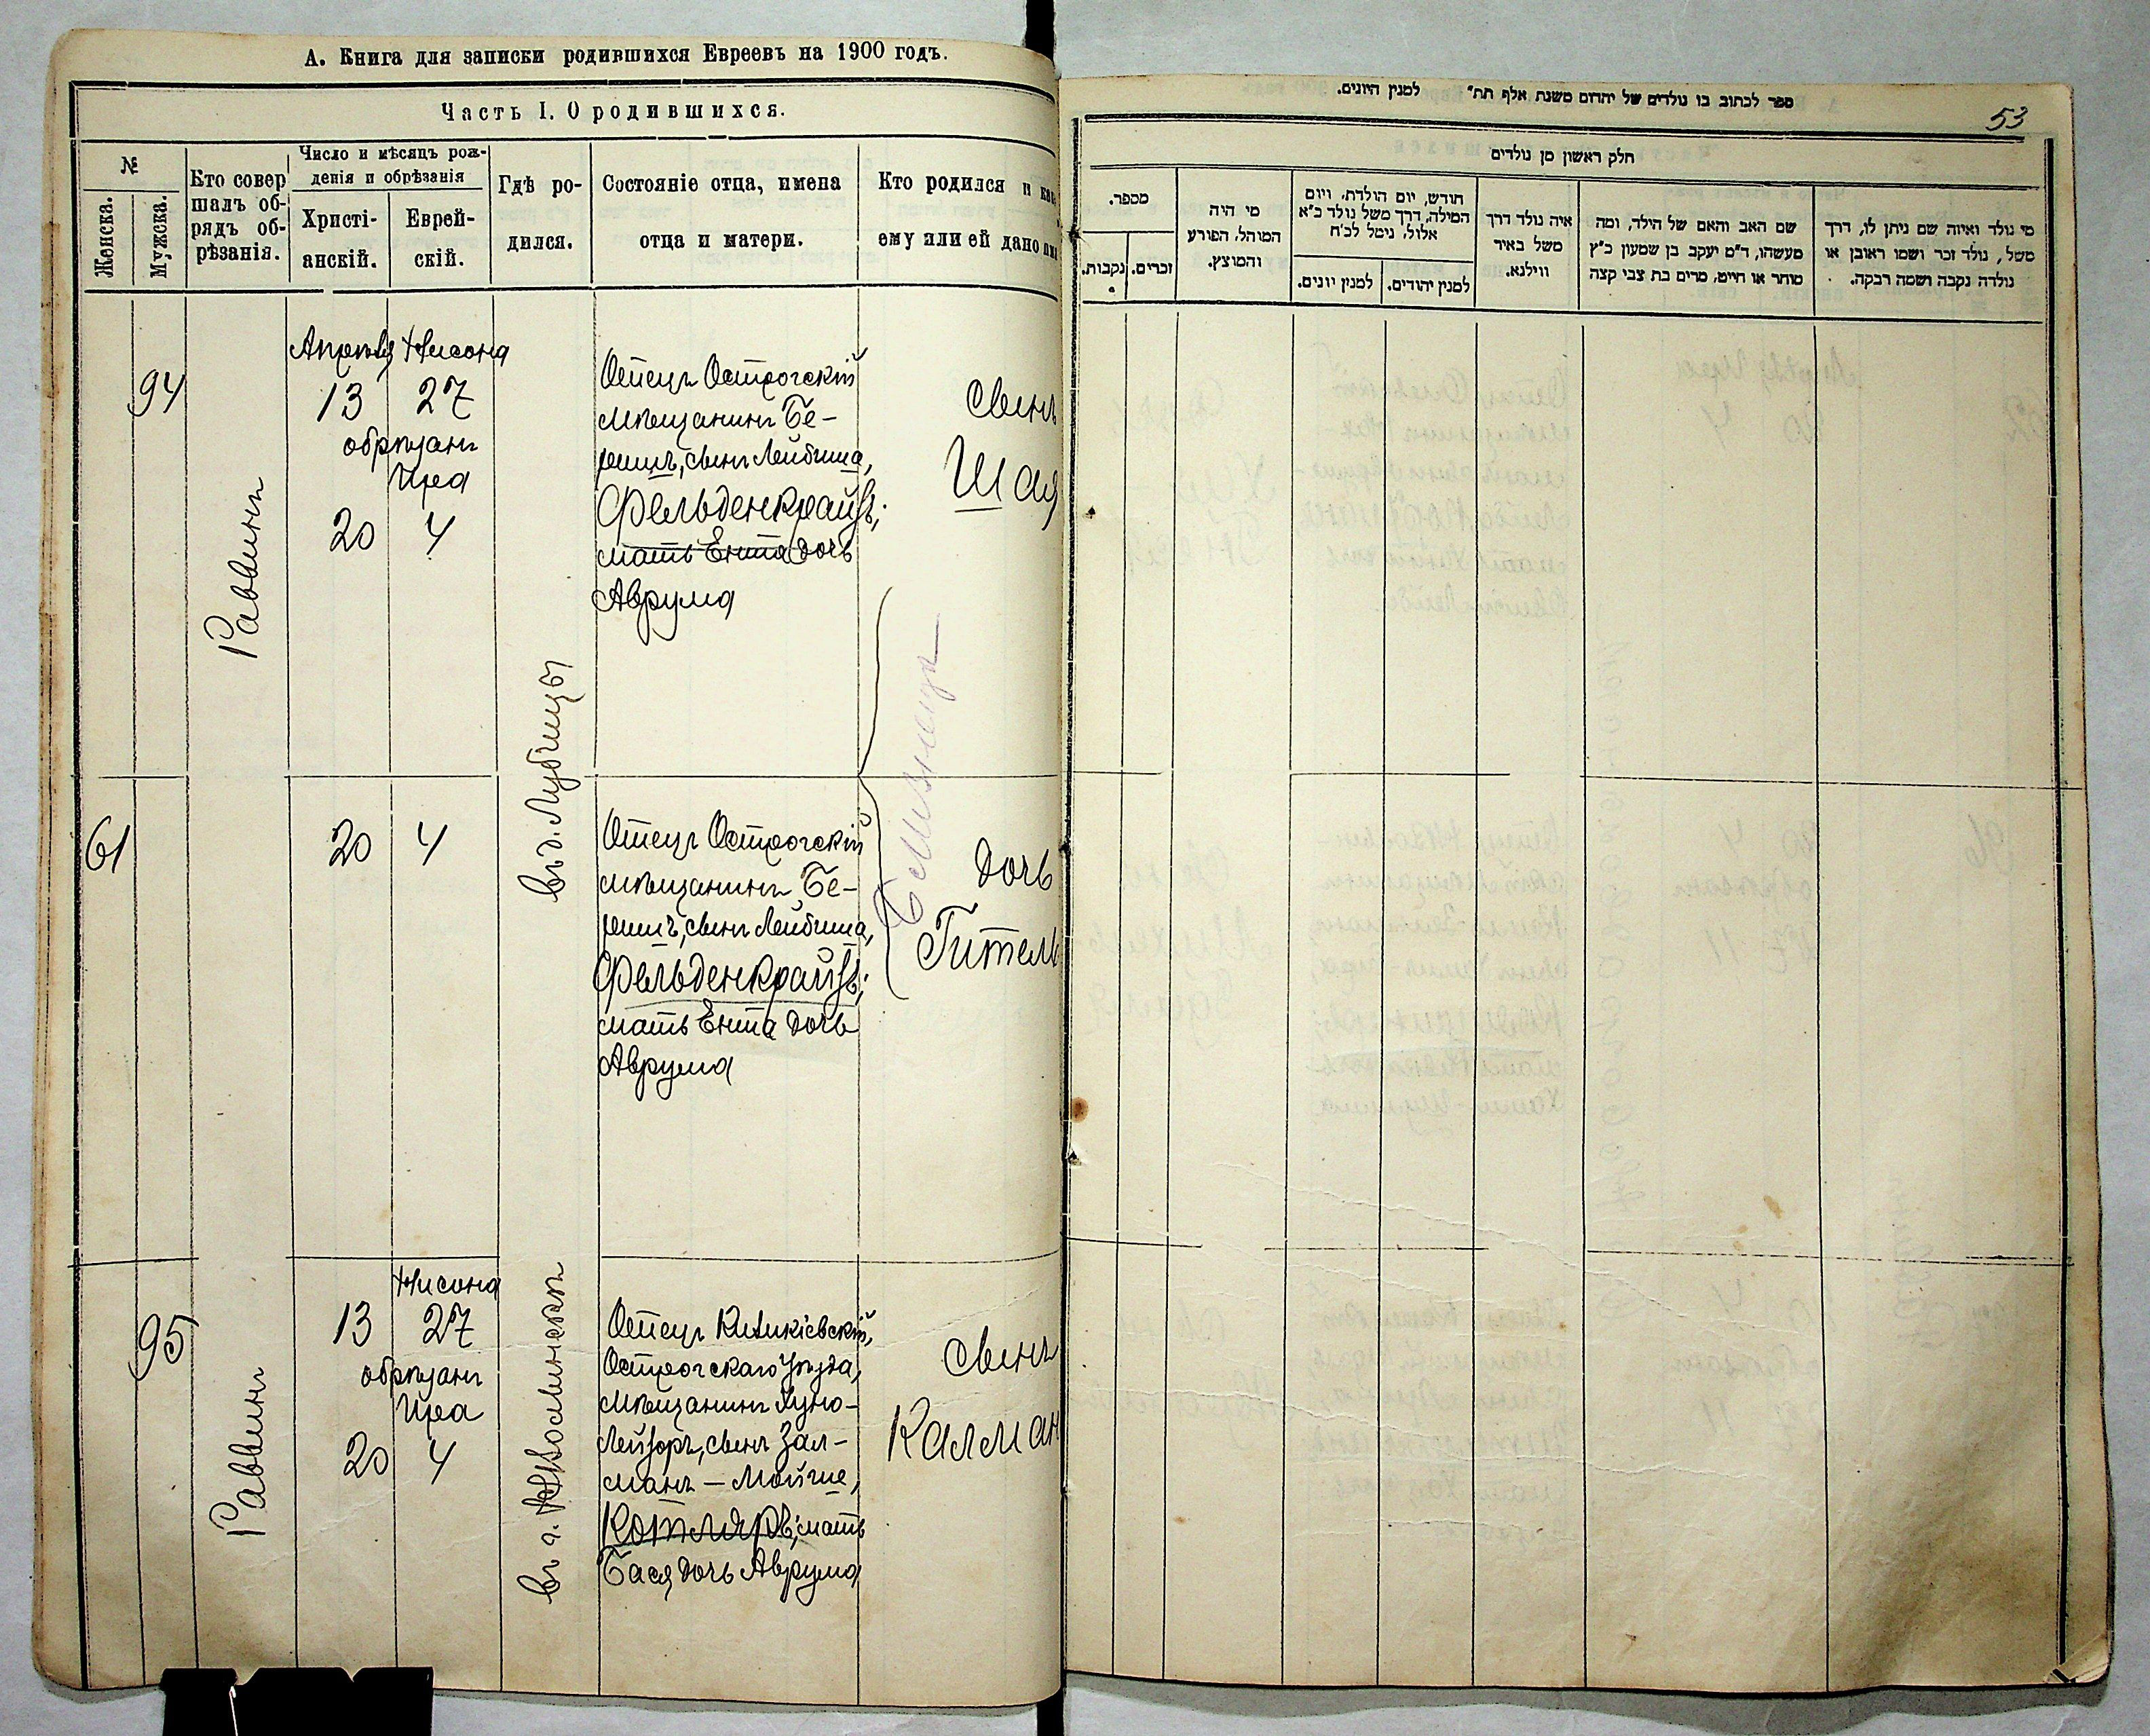 А. Книга для записки родившихся Евреевъ на 1900 годъ.
Часть I. О родившихся.
№
Женска.
Мужска.
Кто совер
шалъ об-
рядъ об-
рѣзанія.
Число и мѣсяцъ рож-
денія и обрѣзанія
Христі-
анскій.
Еврей-
скій.
Гдѣ ро-
дился.
Состояніе отца, имена
отца и матери.
Кто родился и как
ему или ей дано им
94
Раввинъ
Апрѣля Нисона
13 27
обрѣзанъ
Ира
20 4
въ д. Лубчицы
Отецъ Острогскій
мѣщанинъ Бе-
ришъ, сынъ Лейбиша,
Фельденкрайзъ;
мать Ента дочь
Аврума
Сынъ
Шая
Близнецы
61
20 4
Отецъ Острогскій
мѣщанинъ Бе-
ришъ, сынъ Лейбиша,
Фельденкрайзъ;
мать Ента дочь
Аврума
Дочь
Гитель
95
Раввинъ
Нисона
13 27
обрѣзанъ
Ира
20 4
въ г. НВолынскѣ
Отецъ Киликіевскій,
Острогскаго уѣзда,
мѣщанинъ Хуно-
Лейзоръ, сынъ Зал-
манъ-Мойше,
Котляръ; мать
Бася дочь Аврума
Сынъ
Калман
ספר לכתוב בו נולדים של יהדום משנת אלף תת״ למנין היונים.
53
חלק ראשון מן נולדים
מספר.
נקבות.
זכרים.
מי היה
המוהל, הפורע
והמוצץ.
חודש, יום הולדת, ויום
המילה, דרך משל נולד כ״א
אלול, נימל לכ״ח
למנין יונים.
למנין יהודים.
איה נולד דרך
משל באיר
ווילנא.
שם האב והאם של הילד, ומה
מעשהו, ד״מ יעקב בן שמעון כ״ץ
סוחר או חייט, מרים בת צבי קצה
מי נולד ואיזה שם ניתן לו, דרך
משל, נולד זכר ושמו ראובן או
נולדה נקבה ושמה רבקה.